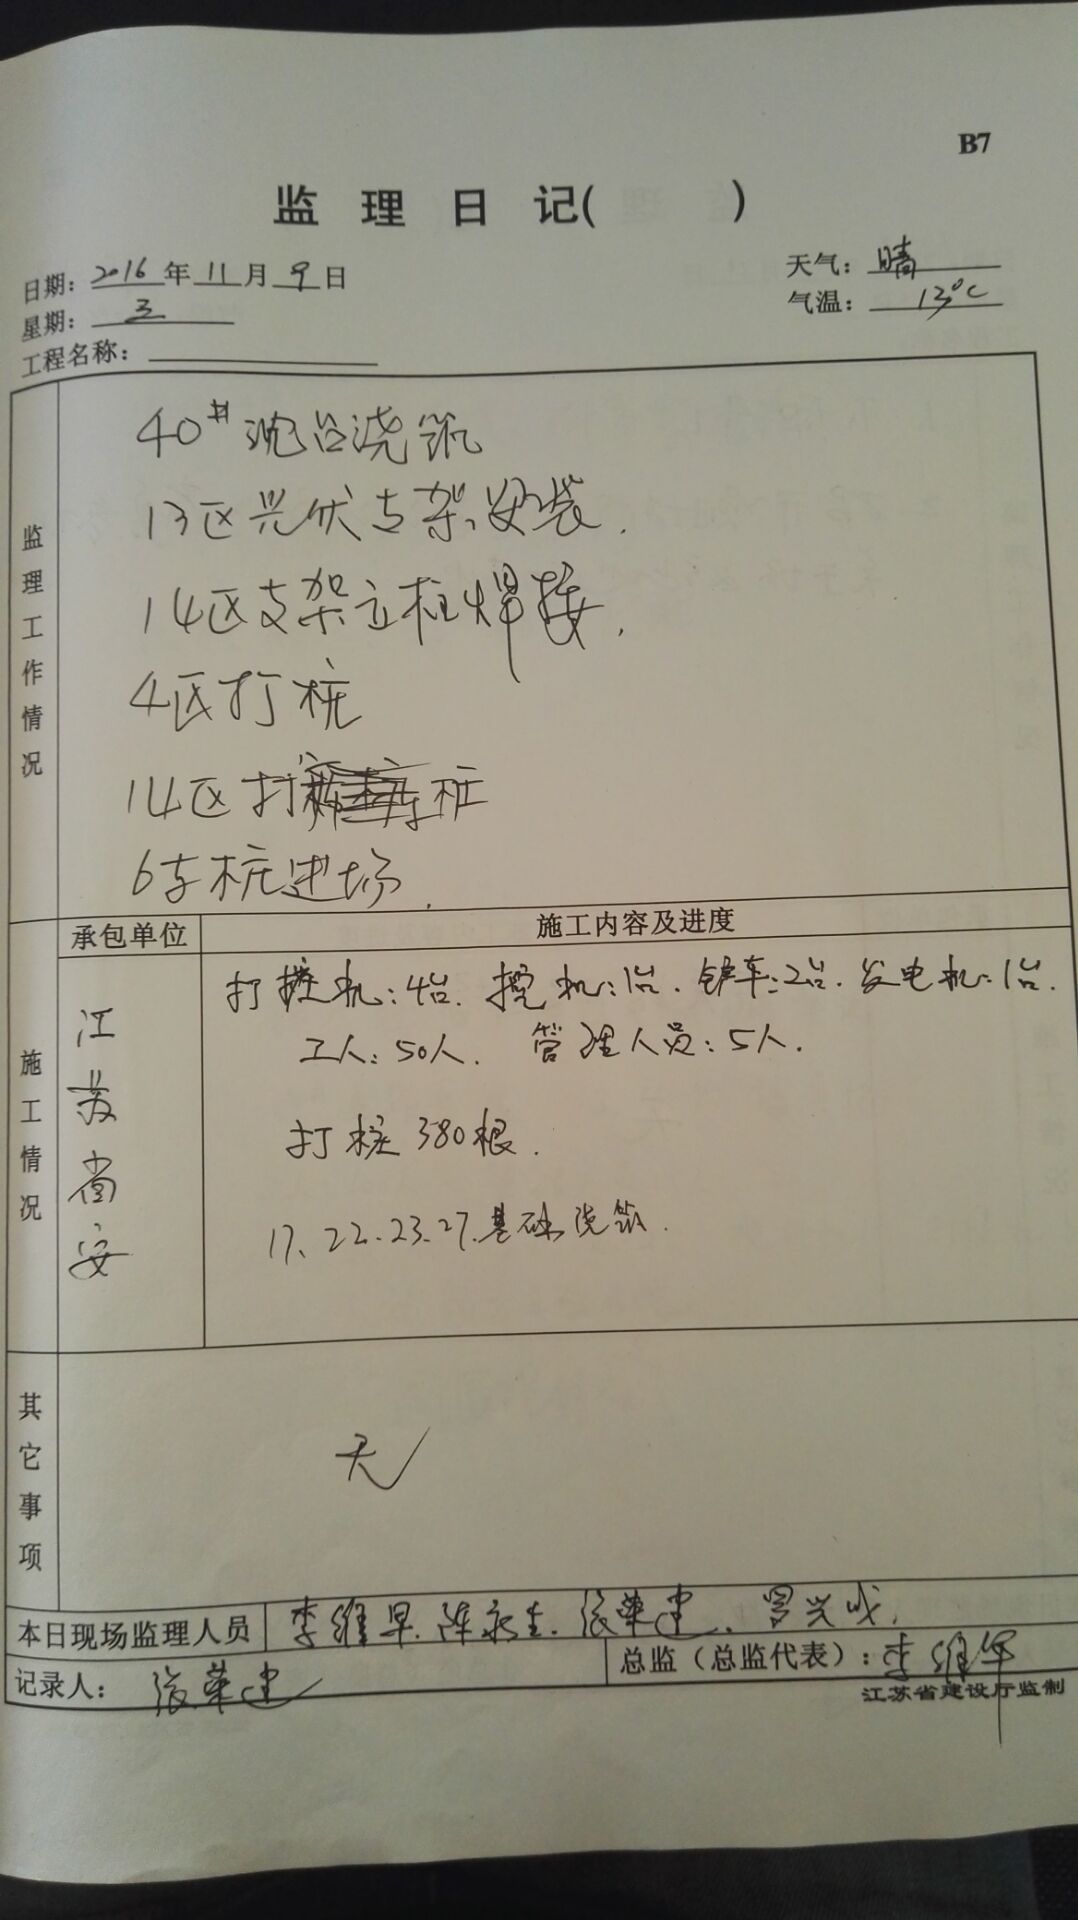 B7
监理日记( )
日期：2016年11月9日
天气：晴
星期：3
气温：13°C
工程名称：
监理工作情况
40#浇筑
13区光伏支架安装.
14区支架立柱焊接.
4区打桩
14区打桩
6车桩进场.
施工情况
承包单位
施工内容及进度
江苏省安
打桩机：4台. 挖机：1台. 铲车：2台. 发电机：1台.
工人：50人. 管理人员：5人.
打桩380根.
17、22、23、27.基础浇筑.
其它事项
无
本日现场监理人员
李维早. 陈永. 张荣建. 罗兴成.
记录人：张荣建
总监（总监代表）：李维早
江苏省建设厅监制